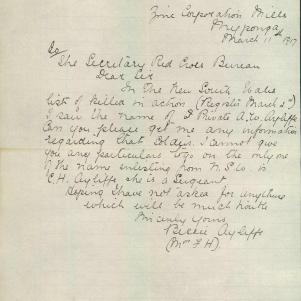 Zinc Corporation Mills
Myponga
March 11th 1917
To
The Secretary Red Cross Bureau
Dear Sir
In the New South Wales
lists of killed in action (Register March 2nd)
I saw the name of Private Ayliffe
Can you please get me any information
regarding that I cannot give
you any particulars to go on the only one
of the name enlisting from N.S.W. is
C.H. Ayliffe she is a Sergeant
Hoping I have not asked for anything
which will be much trouble
Sincerely Yours
Ayliffe
(Mrs F H)